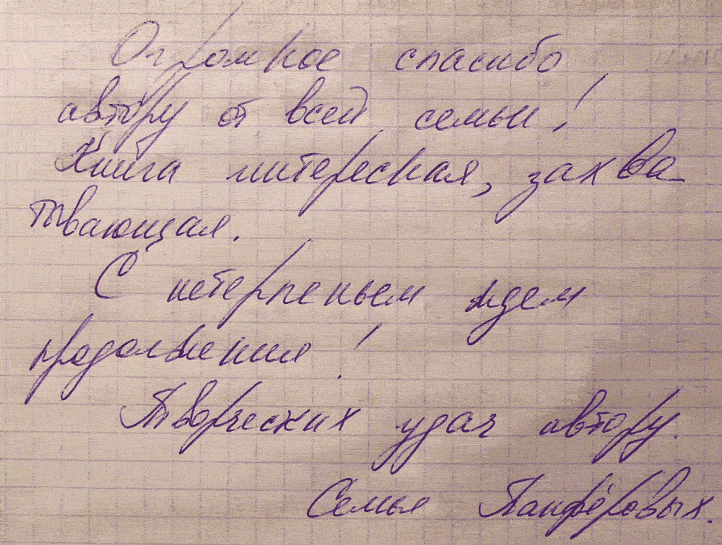 Огромное спасибо
автору от всей семьи!
Книга интересная, захва-
тывающая.
С нетерпеньем ждем
продолжения!
Творческих удач автору.
Семья Панфёровых.